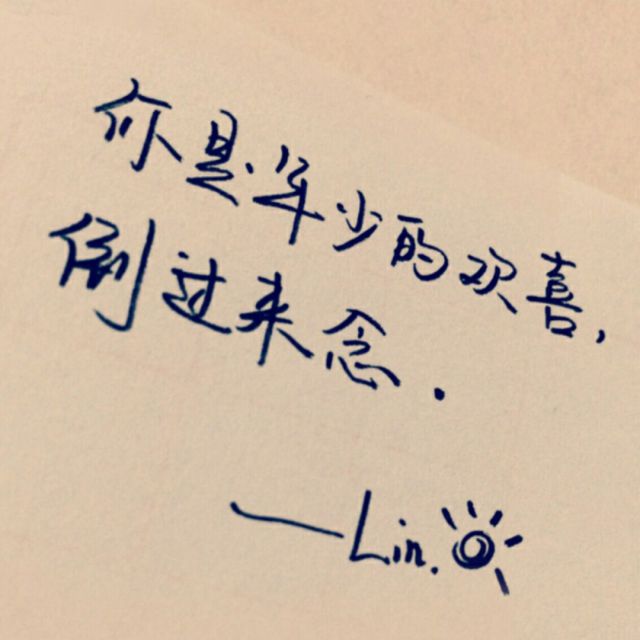 你是年少的欢喜,
倒过来念.
——Lin.